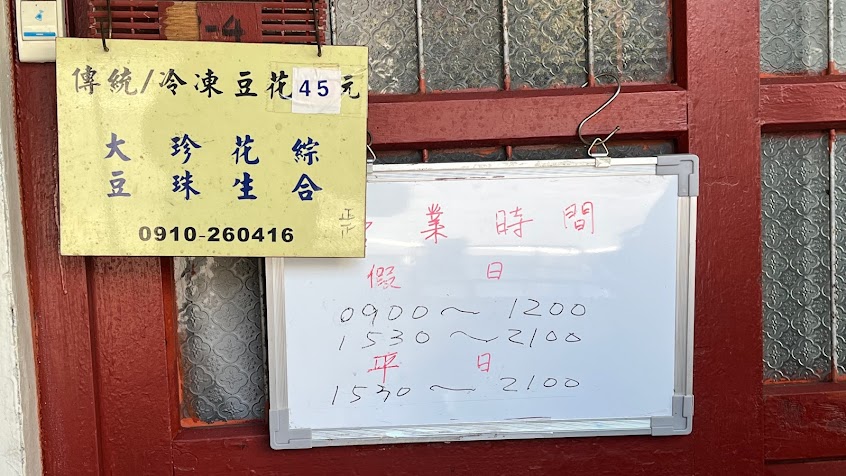 傳統/冷凍豆花45元
大 珍 花 綜
豆 珠 生 合
0910-260416
業時間
假日
0900～1200
1530～2100
平日
1530～2100